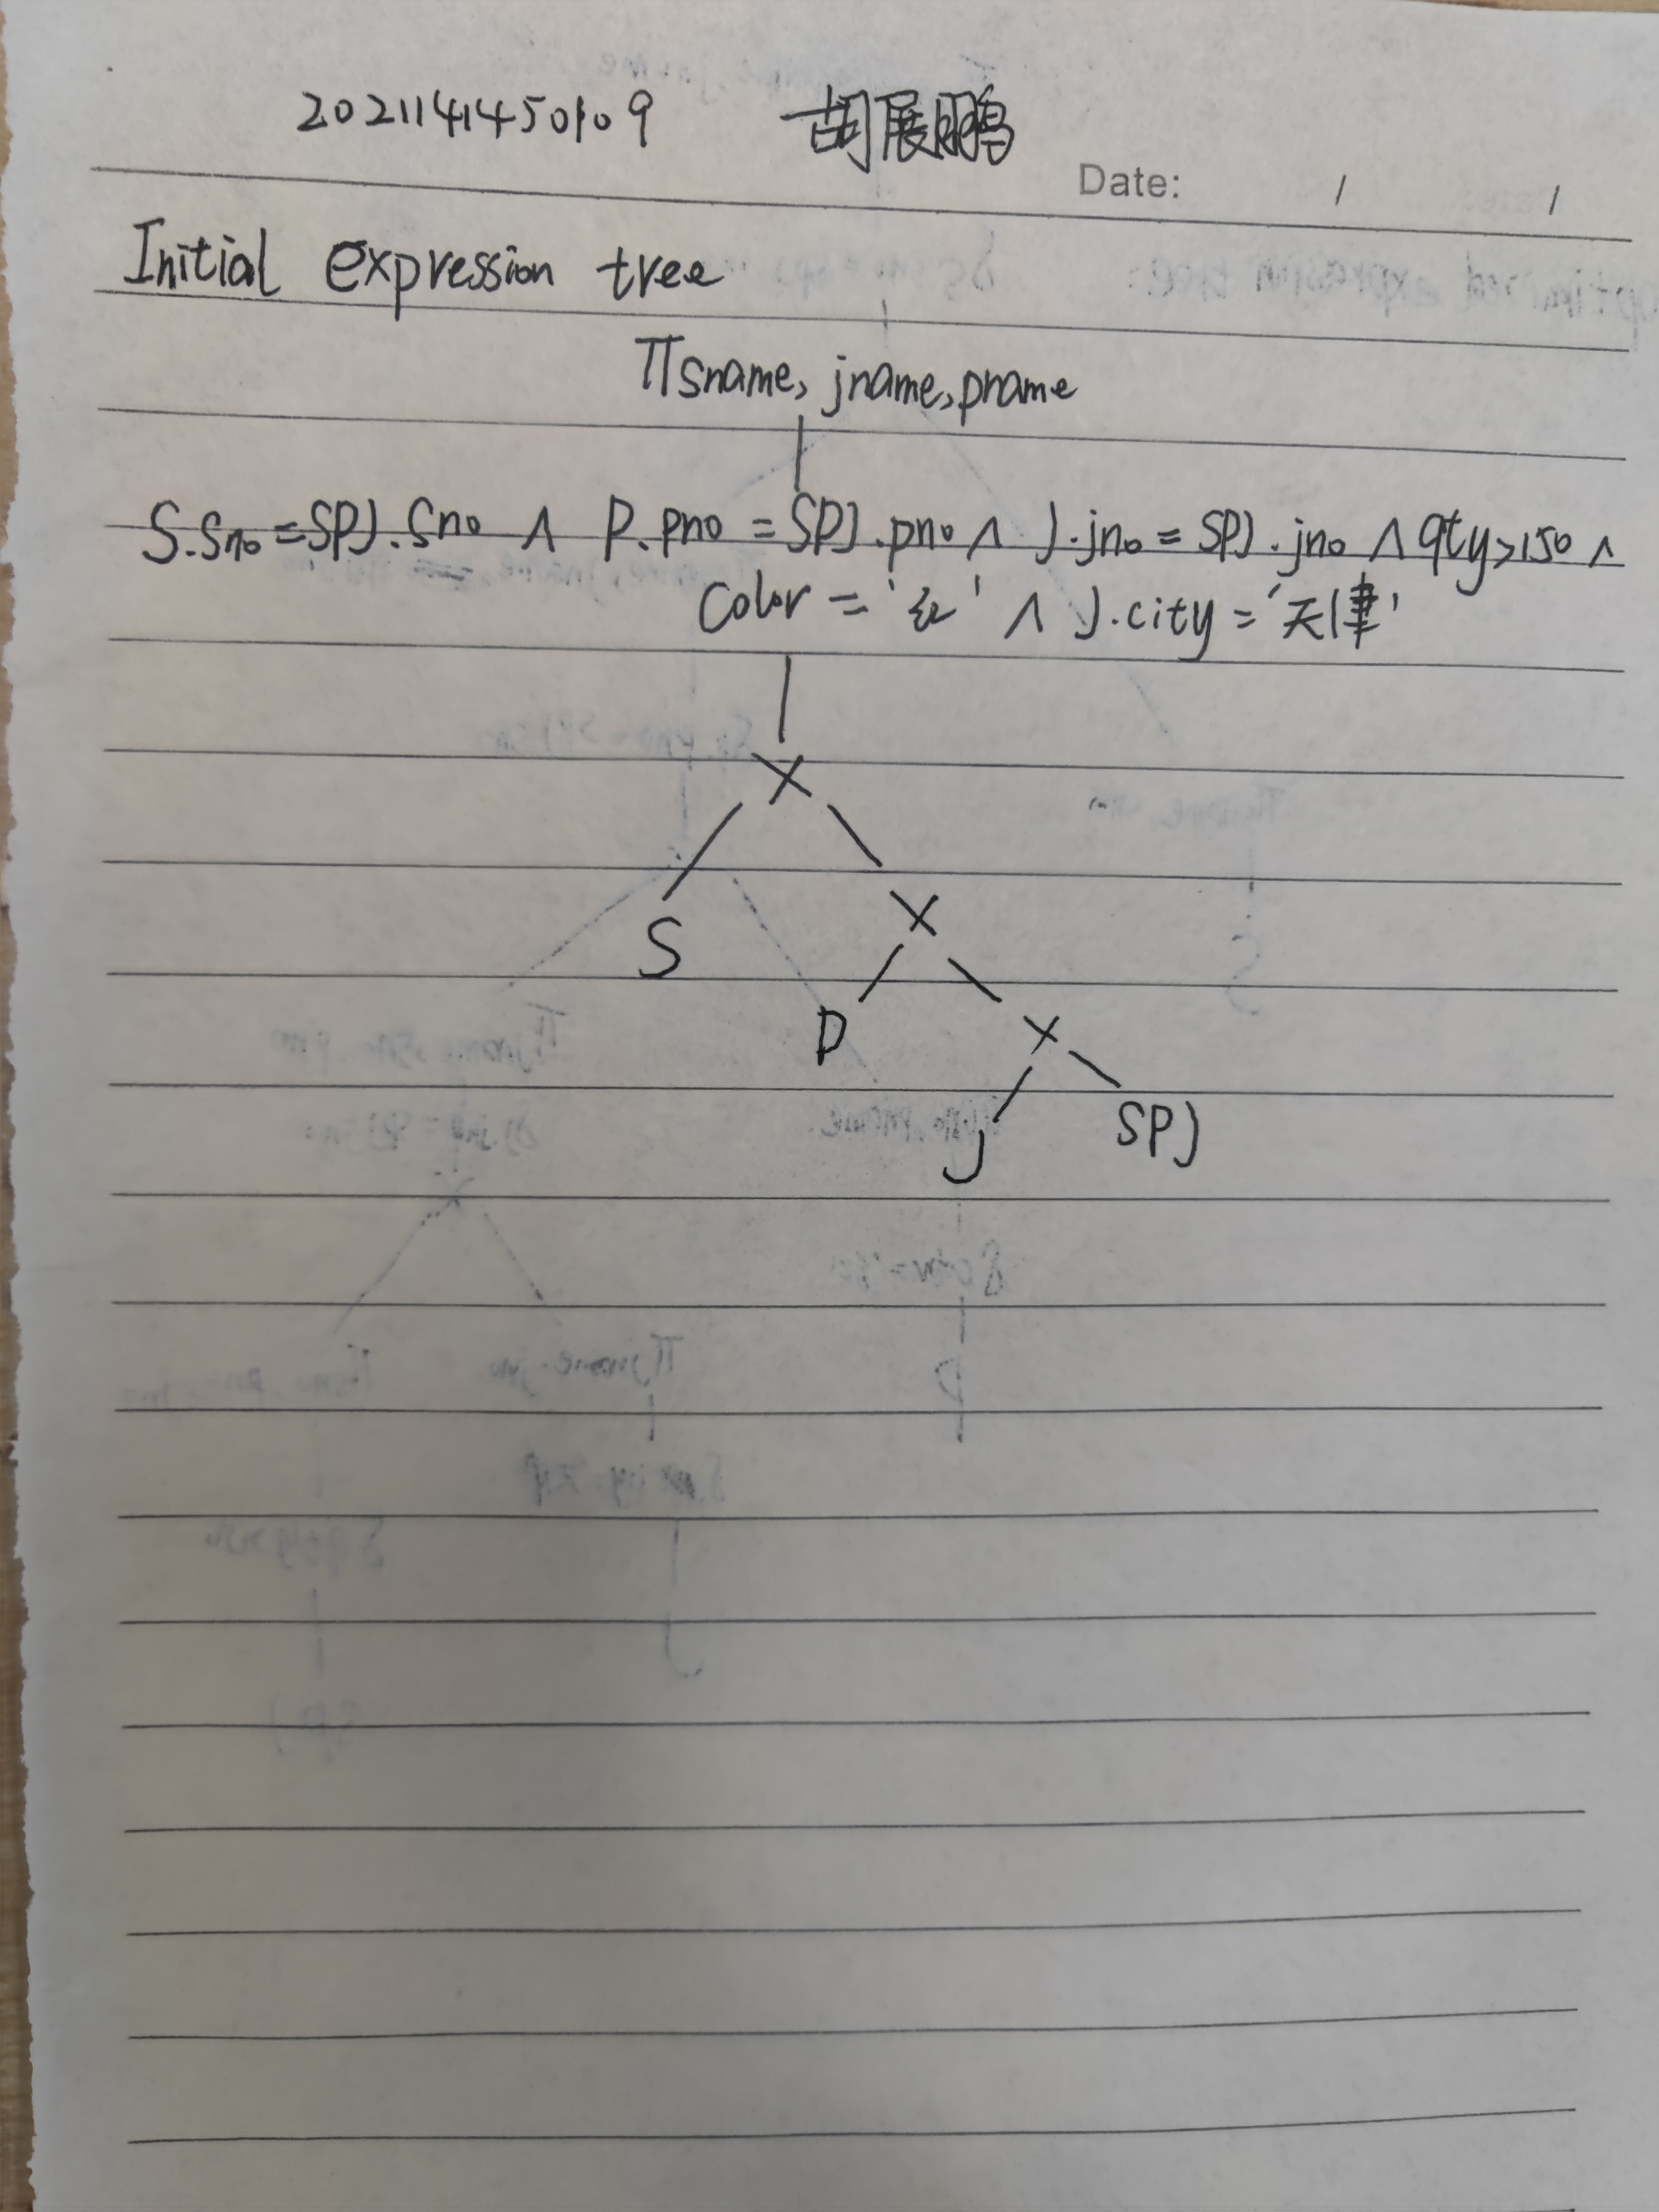 2021141450109 胡展鹏
Date: / /
Initial expression tree
πsname, jname, pname
S.sno = SPJ.sno ∧ P.pno = SPJ.pno ∧ J.jno = SPJ.jno ∧ qty>150 ∧
Color = '红' ∧ J.city = '天津'
×
S ×
P ×
J SPJ